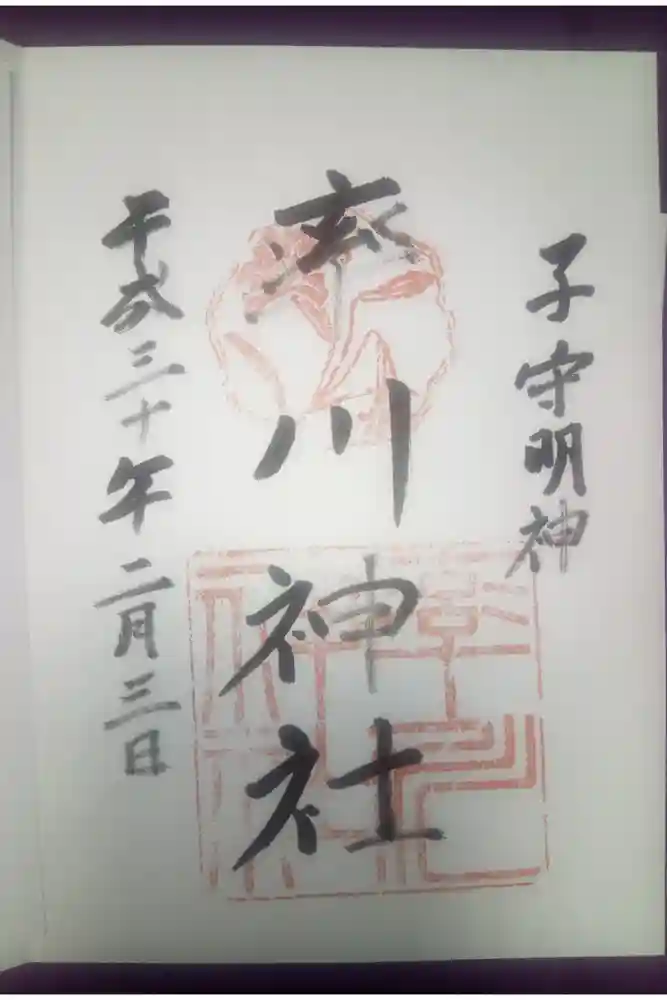 子守明神
流川神社
平成三十年二月三日